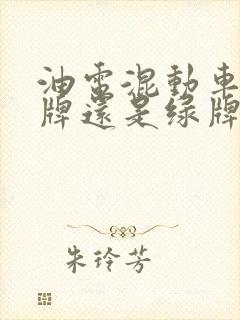 油電混動車
牌還是綠牌
朱玲芳